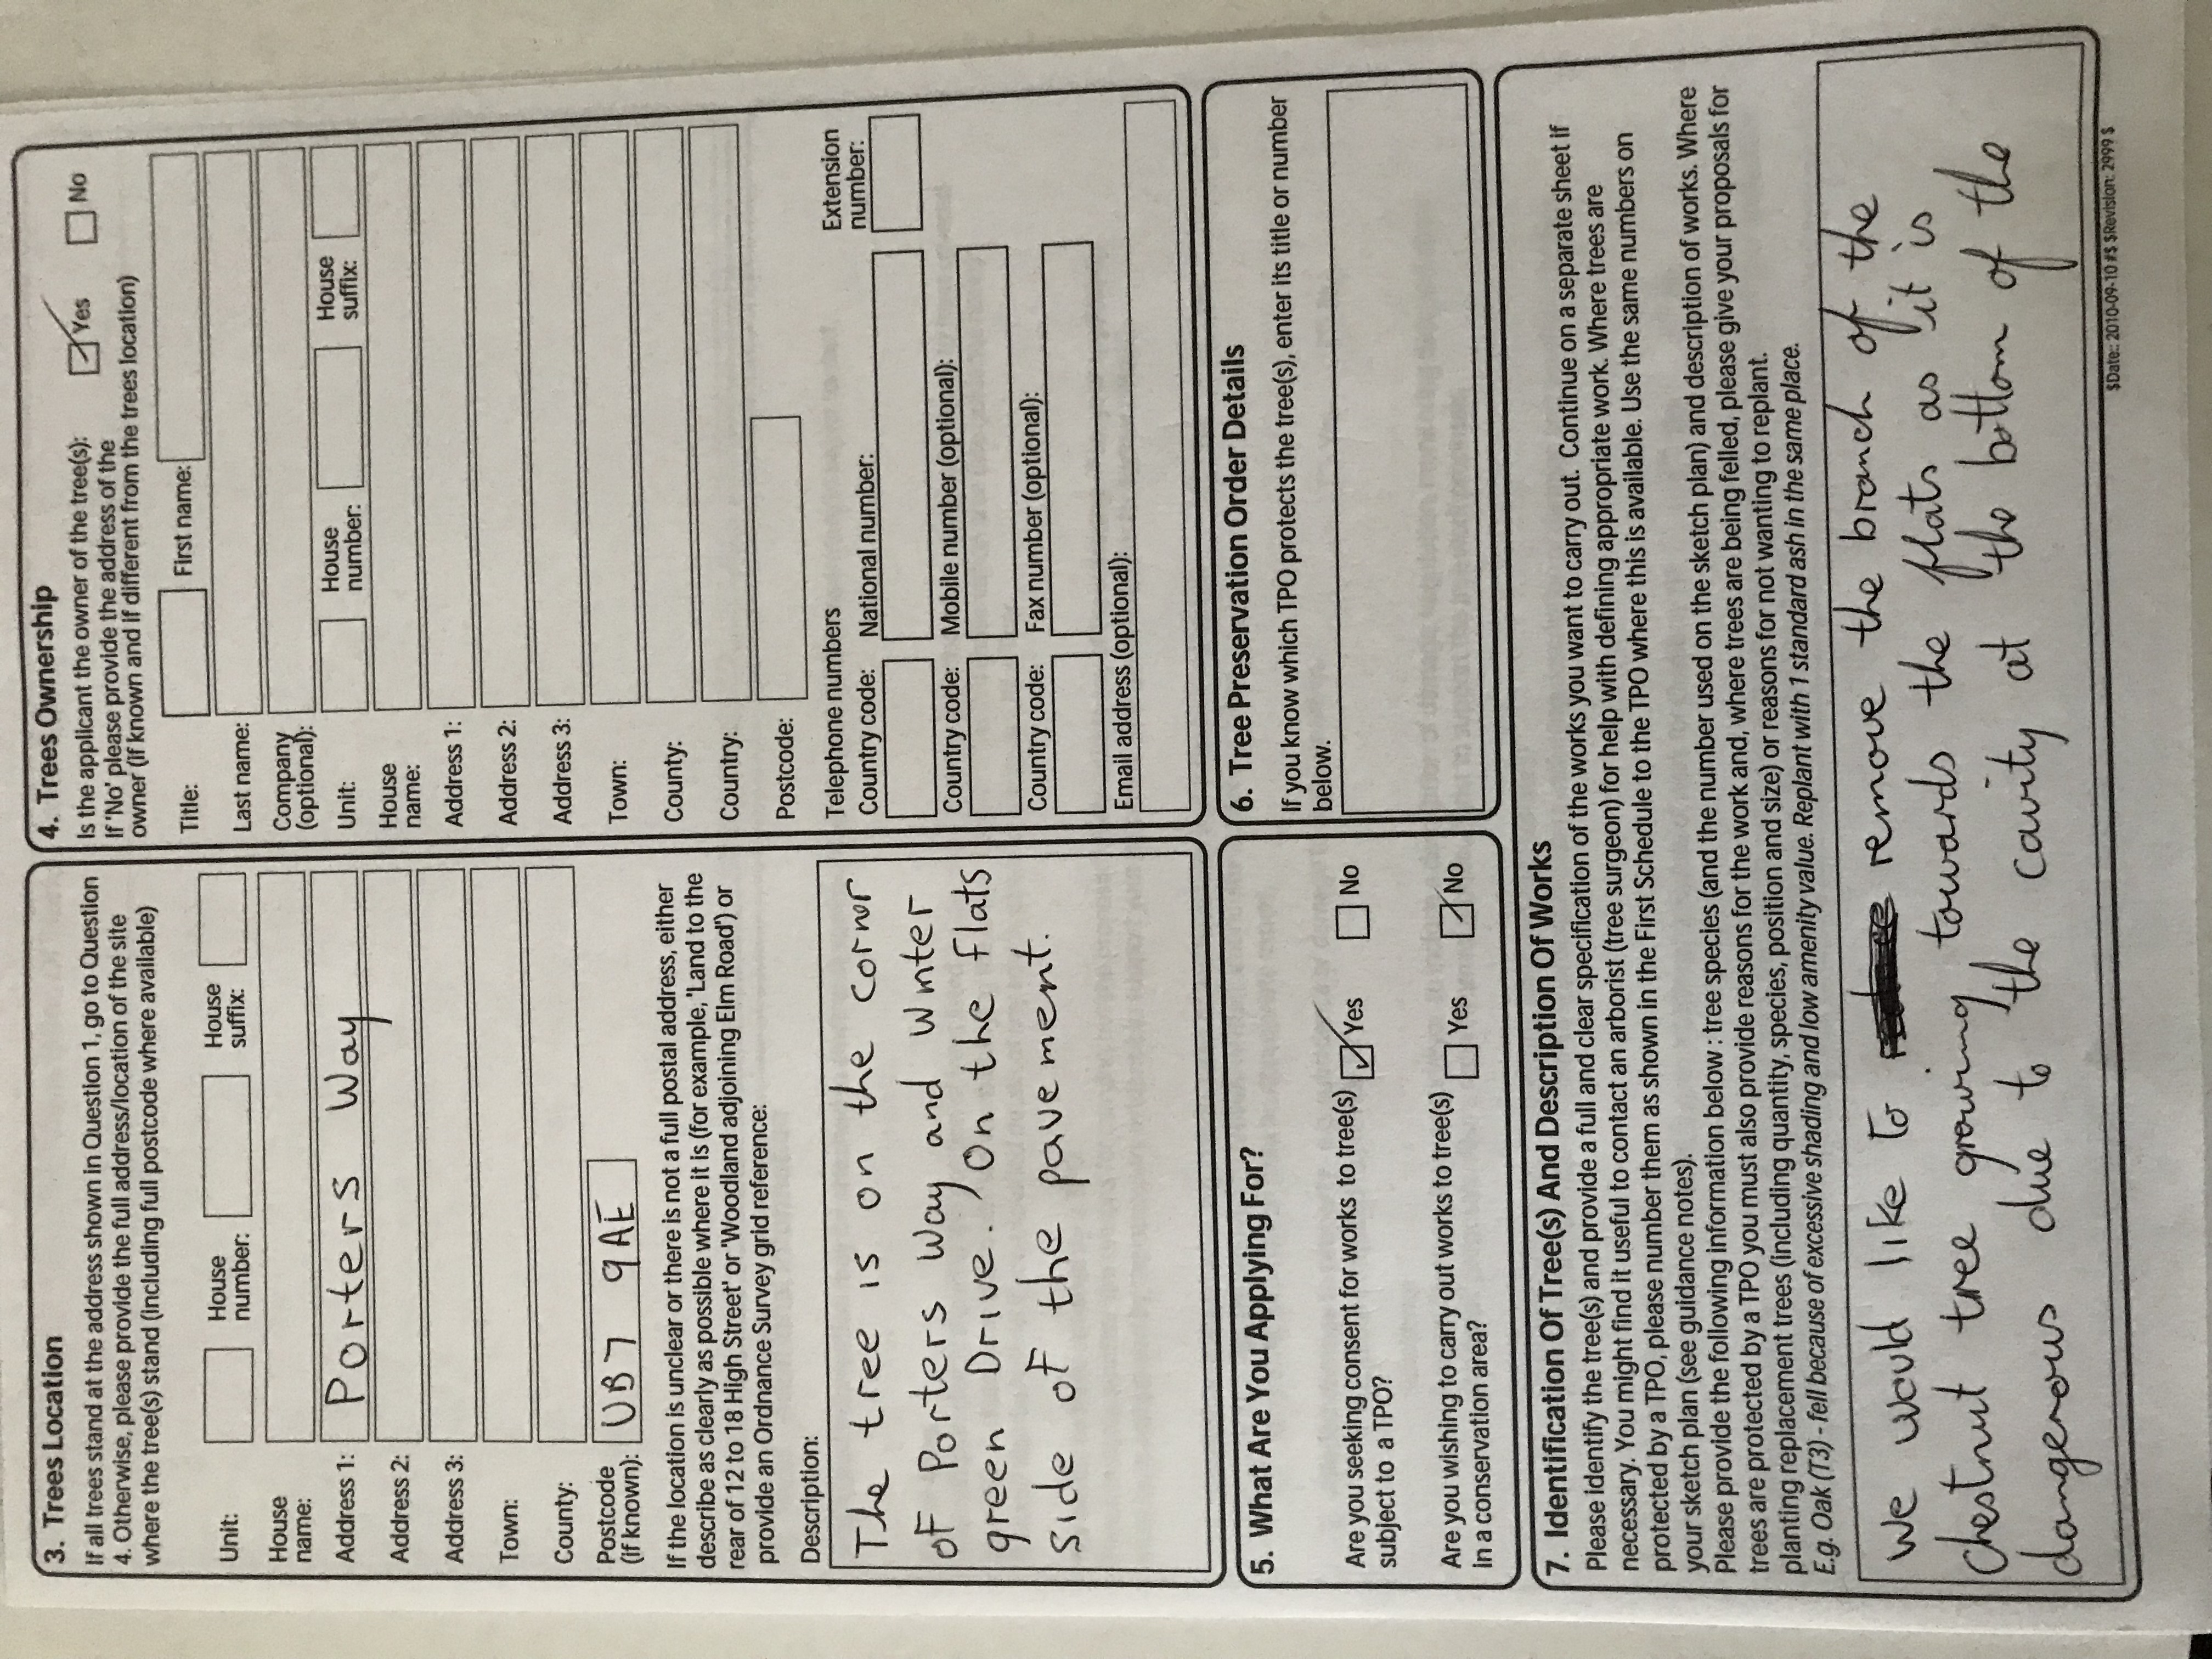 3. Trees Location
If all trees stand at the address shown in Question 1, go to Question
4. Otherwise, please provide the full address/location of the site
where the tree(s) stand (including full postcode where available)
Unit:
House number:
House suffix:
House name:
Address 1: Porters Way
Address 2:
Address 3:
Town:
County:
Postcode (if known): UB7 9AE
If the location is unclear or there is not a full postal address, either
describe as clearly as possible where it is (for example, 'Land to the
rear of 12 to 18 High Street' or 'Woodland adjoining Elm Road') or
provide an Ordnance Survey grid reference:
Description:
The tree is on the cornor
of Porters way and winter
green Drive. On the flats
side of the pavement.
4. Trees Ownership
Is the applicant the owner of the tree(s): Yes No
If 'No' please provide the address of the
owner (if known and if different from the trees location)
Title: First name:
Last name:
Company (optional):
Unit:
House number:
House suffix:
House name:
Address 1:
Address 2:
Address 3:
Town:
County:
Country:
Postcode:
Telephone numbers
Country code: National number: Extension number:
Country code: Mobile number (optional):
Country code: Fax number (optional):
Email address (optional):
5. What Are You Applying For?
Are you seeking consent for works to tree(s) Yes No
subject to a TPO?
Are you wishing to carry out works to tree(s) Yes No
in a conservation area?
6. Tree Preservation Order Details
If you know which TPO protects the tree(s), enter its title or number
below.
7. Identification Of Tree(s) And Description Of Works
Please identify the tree(s) and provide a full and clear specification of the works you want to carry out. Continue on a separate sheet if
necessary. You might find it useful to contact an arborist (tree surgeon) for help with defining appropriate work. Where trees are
protected by a TPO, please number them as shown in the First Schedule to the TPO where this is available. Use the same numbers on
your sketch plan (see guidance notes).
Please provide the following information below : tree species (and the number used on the sketch plan) and description of works. Where
trees are protected by a TPO you must also provide reasons for the work and, where trees are being felled, please give your proposals for
planting replacement trees (including quantity, species, position and size) or reasons for not wanting to replant.
E.g. Oak (T3) - fell because of excessive shading and low amenity value. Replant with 1 standard ash in the same place.
We would like to remove the branch of the
chestnut tree growing towards the flats as it is
dangerous due to the cavity at the bottom of the
$Date:: 2010-09-10 #$ $Revision: 2999 $